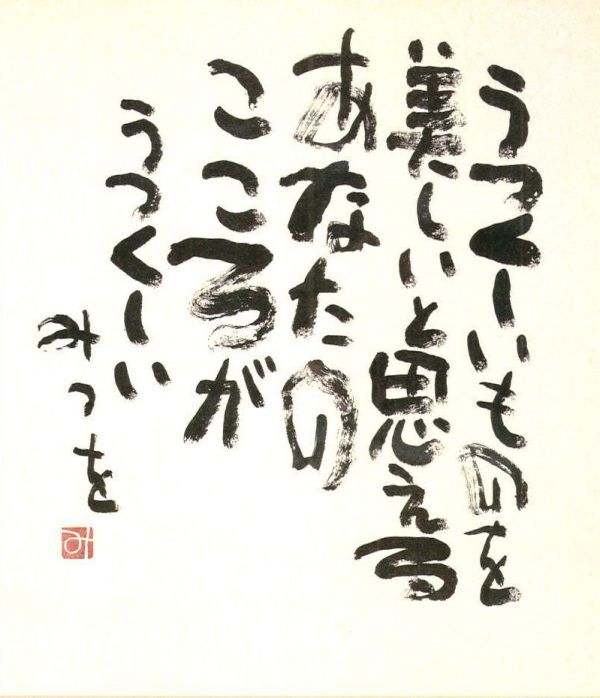 うつくしいものを
美しいと思える
あなたの
こころが
うつくしい
みつを
み